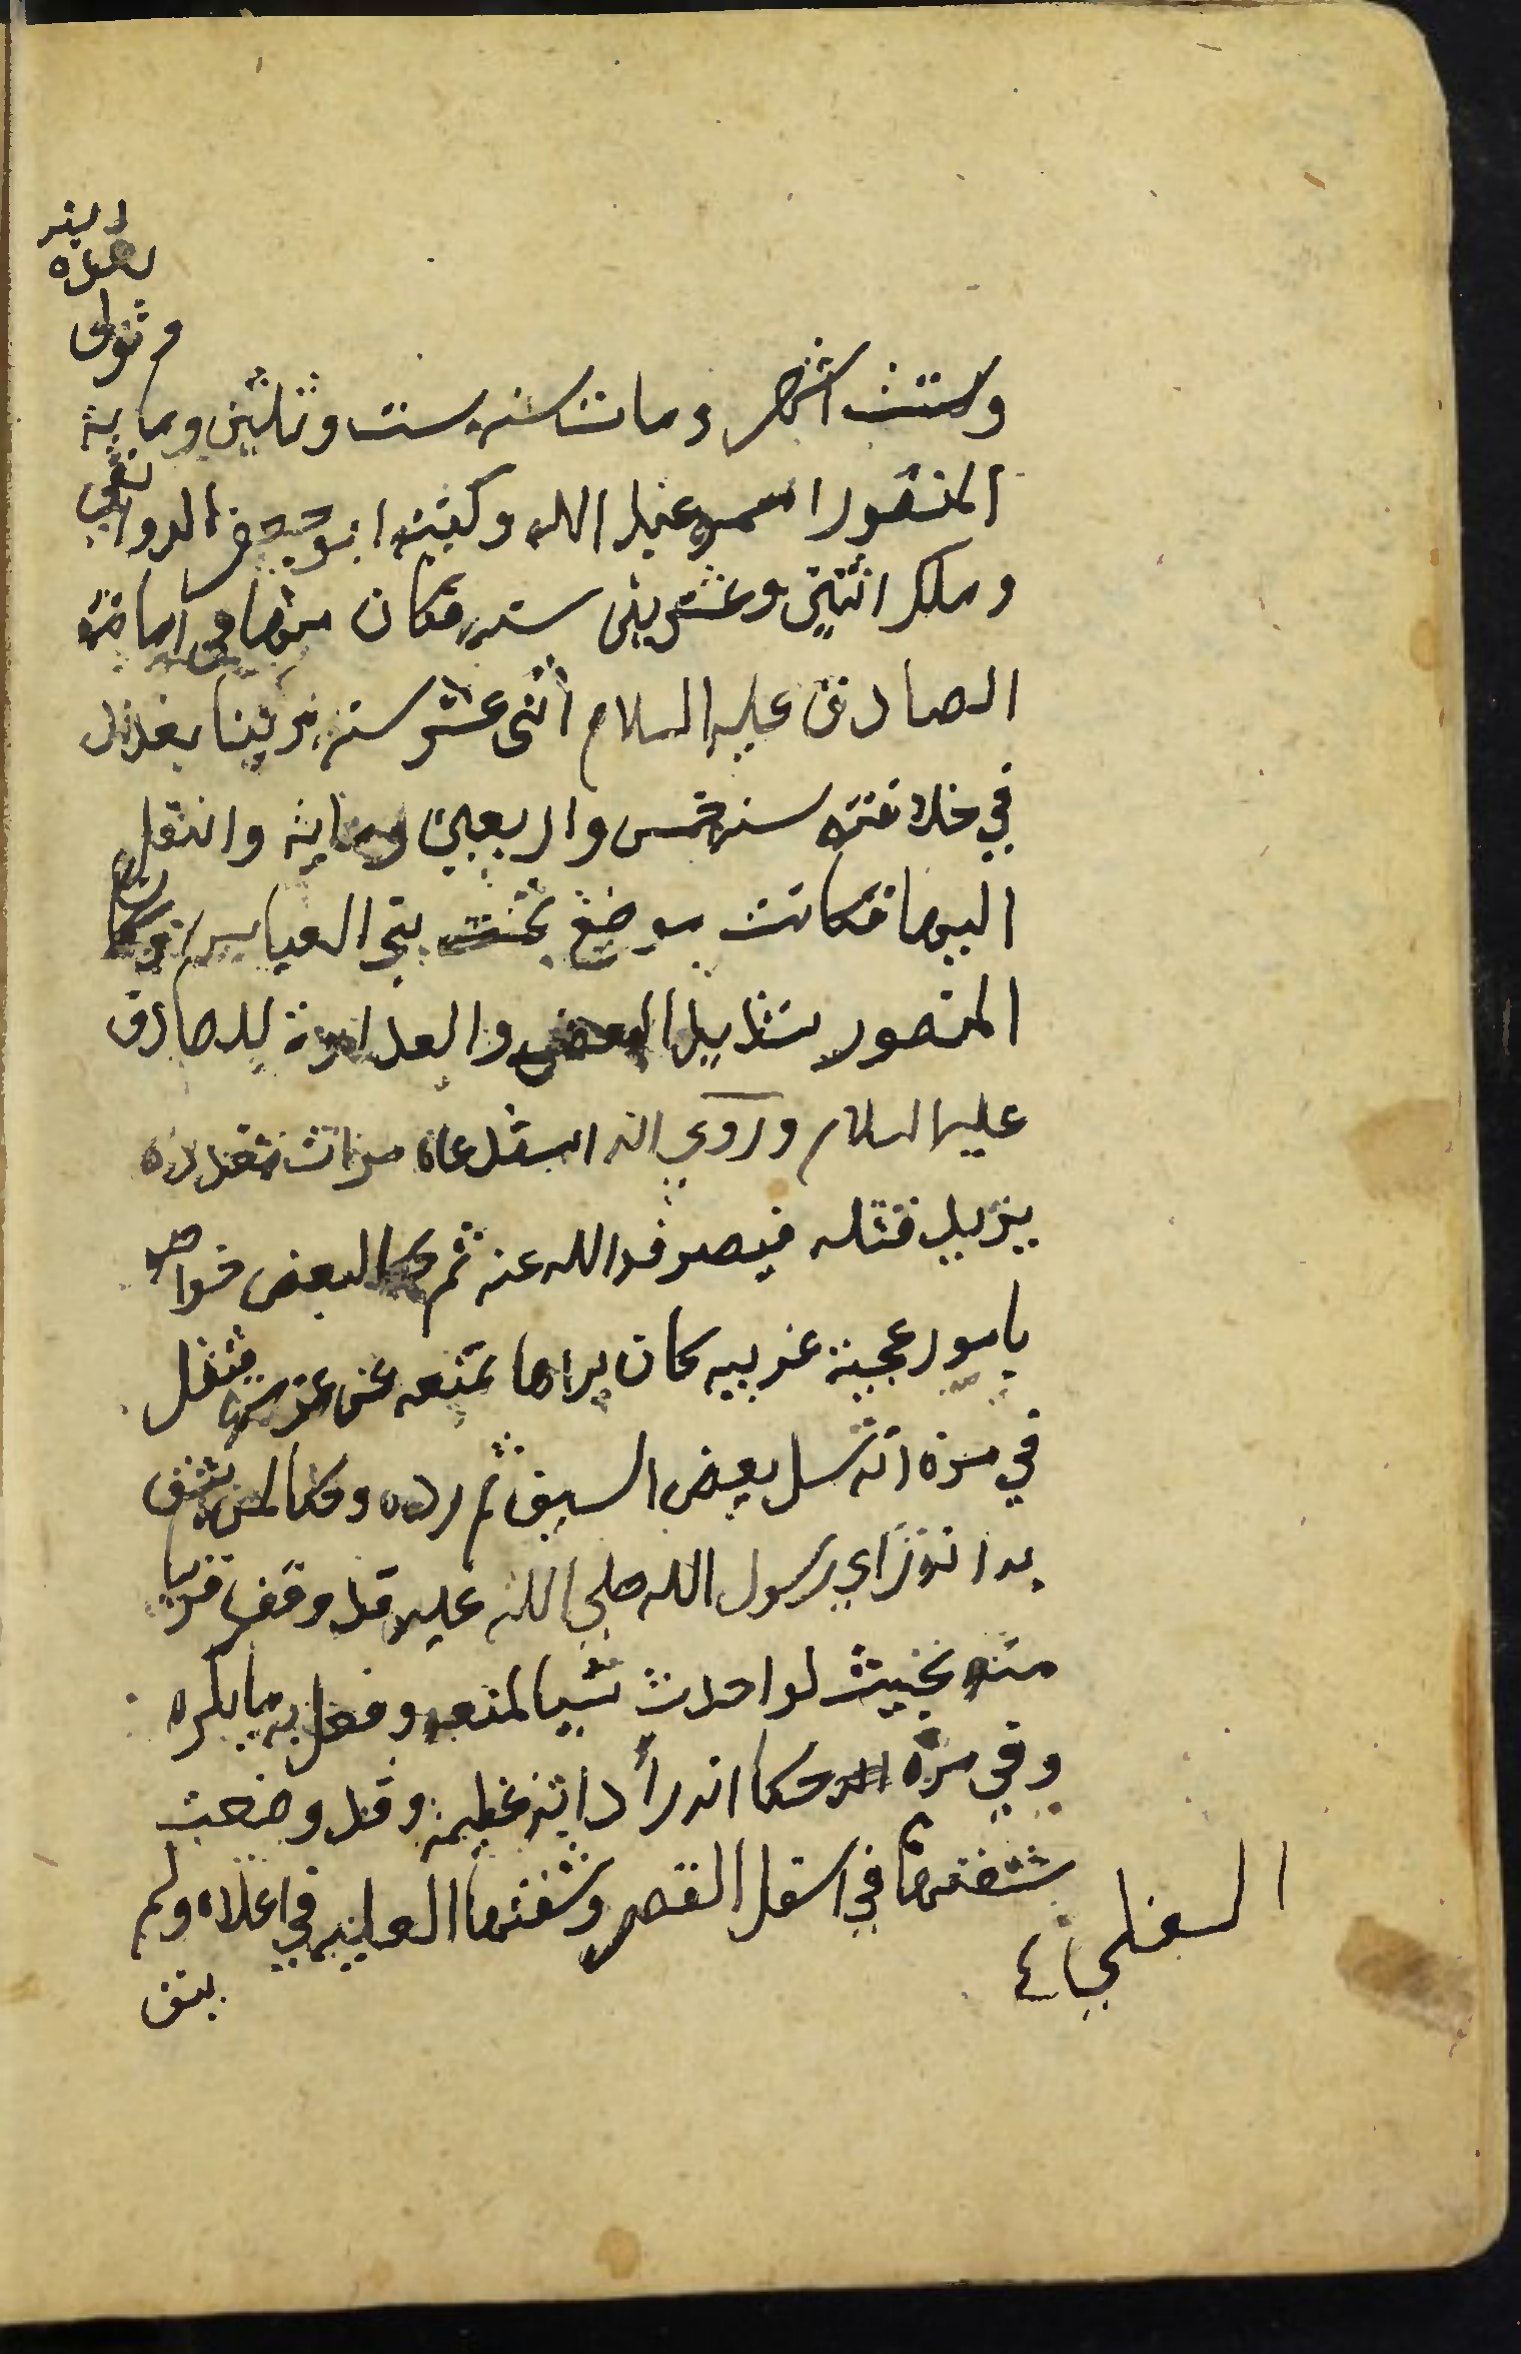 وتولى
وستت اشهر ومات سنه ست وثلثين وماية
المنصور اسمه عبد الله وكنيته ابو جعفر الدوانقي
وملك اثنتين وعشرين سنه فكان منها في امامة
الصادق عليه السلام اثنى عشر سنه بنا بغداد
في خلافته سنه خمس واربعين وماية وانتقل
اليها فكانت موضع بني العباس وكان
المنصور شديد البغض والعداوة للصادق
عليه السلام وروي انه استدعاه مرات متعدده
يريد قتله فيصرفه الله عنه ثم حكا لبعض خواصه
بامور عجيبة غريبه كان يراها تمنعه عن عزمه فنقل
في مره انه سل بعض السيف ثم رده وحكا لمن يثق
به انه راي رسول الله صلي الله عليه قد وقف قريبا
منه بحيث لو احدث شيا لمنعه وفعل به ما يكره
وفي مرة حكا انه رأ دابة عظيمة وقد وضعت
شفتها في اسفل القصر وشفتها العليه في اعلاه ولم
السفلي
يتق